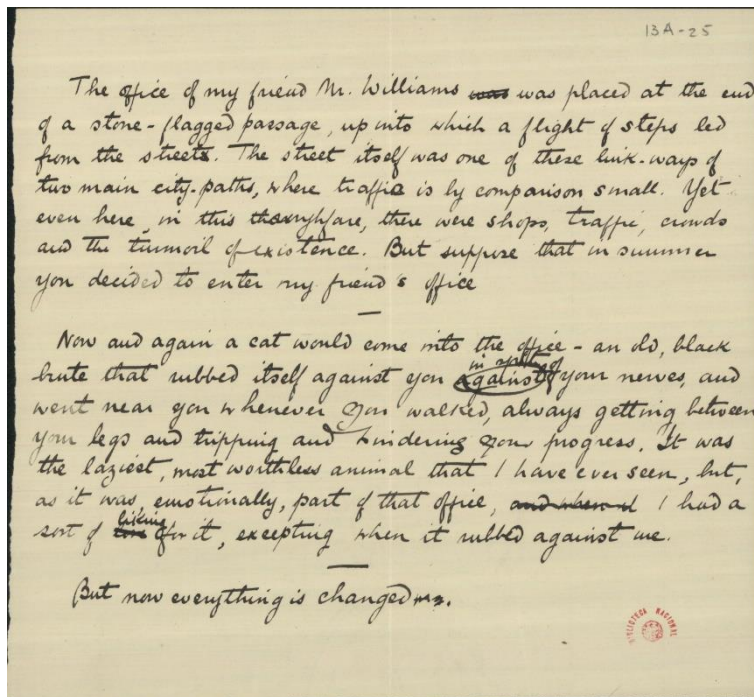 13A-25
The office of my friend Mr. Williams was was placed at the end
of a stone-flagged passage, up into which a flight of steps led
from the street. The street itself was one of these link-ways of
two main city-paths, where traffic is by comparison small. Yet
even here, in this thoroughfare, there were shops, traffic, crowds
and the turmoil of existence. But suppose that in summer
you decided to enter my friend's office
Now and again a cat would come into the office - an old, black
in spite of
brute that rubbed itself against you against your nerves, and
went near you whenever you walked, always getting between
your legs and tripping and hindering your progress. It was
the laziest, most worthless animal that I have ever seen, but,
as it was, emotionally, part of that office, and when it I had a
liking
sort of for it, excepting when it rubbed against me.
But now everything is changed.
BIBLIOTECA NACIONAL